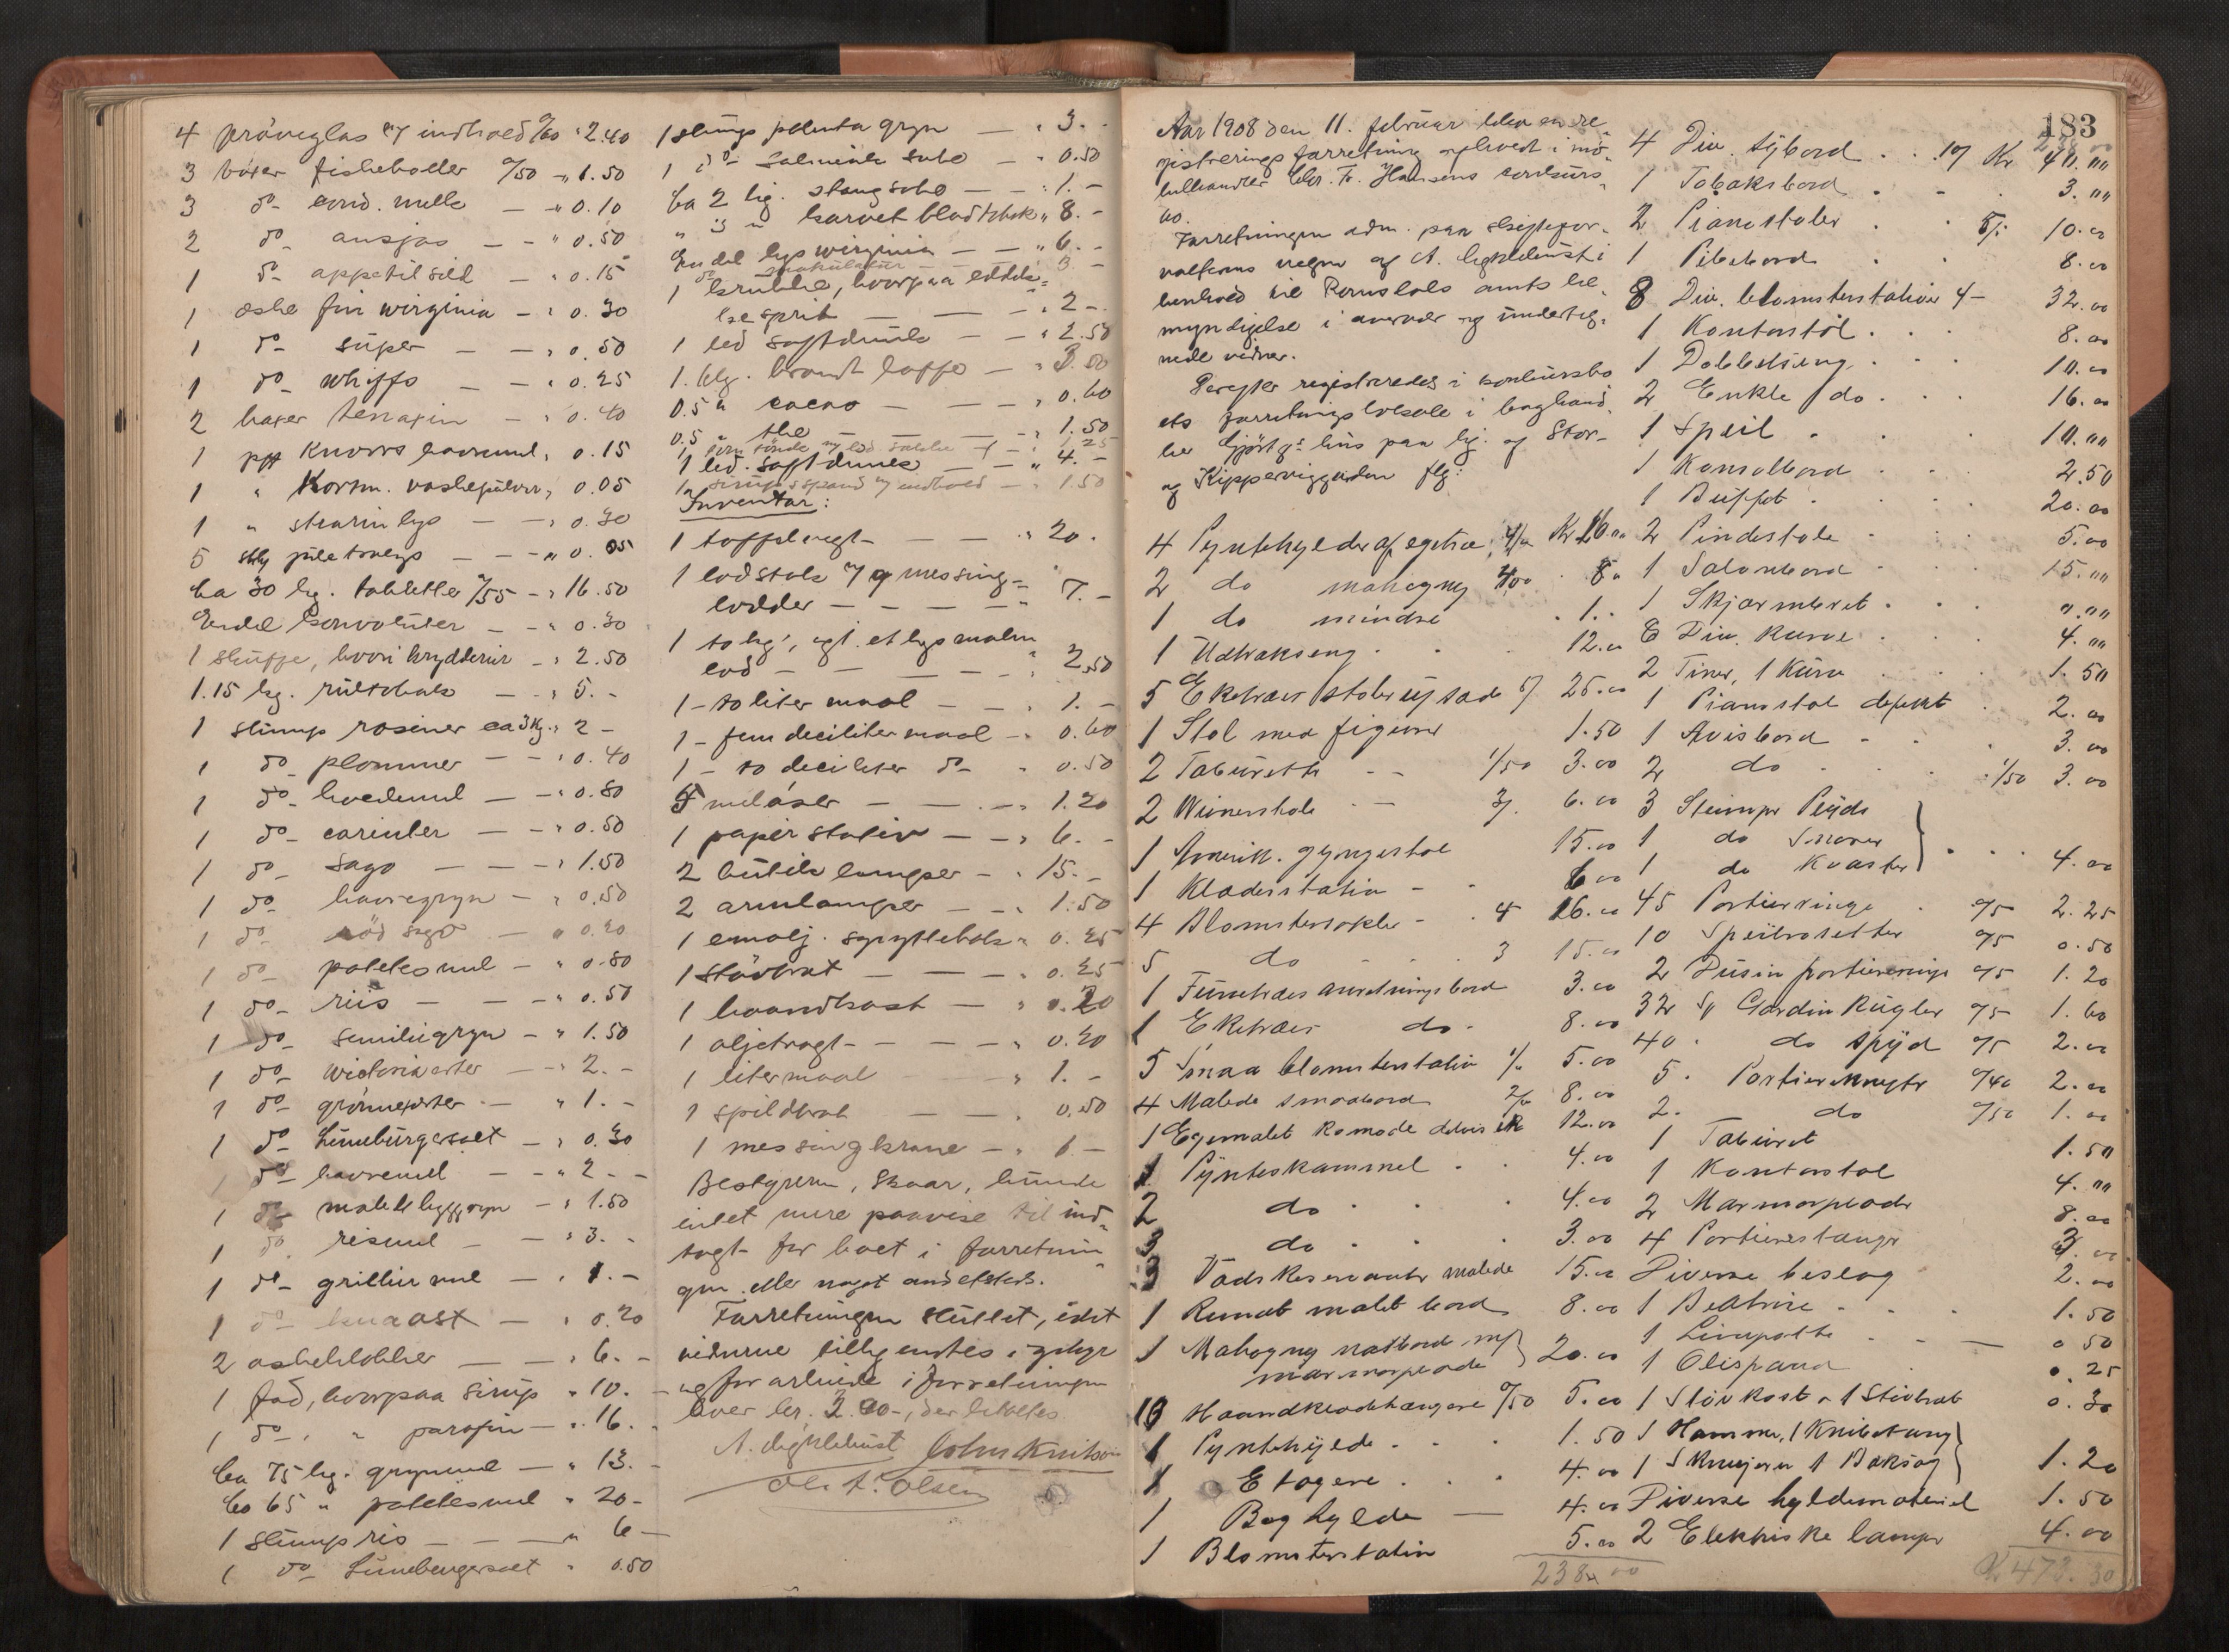 4 prøveglas m/ indhold 0/60 " 2.40
3 bøxer fiskeboller 0/50 - " 1.50
3 do- cond. melk — - " 0.10
2 do- ansjos — - " 0.50
1 do- appetitsild — " 0.15
1 æske fin wirginia - " 0.30
1 do- süper — — " 0.50
1 do- whiffs — — " 0.25
2 baxer terrasin — " 0.40
1 pk Knorrs havremel " 0.15
1 " Kortm. vaskepulver " 0.05
1 " stearinlys — — " 0.30
5 stk juletrelys — — " 0.05
Ca 30 kg. tabletter 0/55 - " 16.50
Endel konvolutter — - " 0.30
1 skuffe, hvori krydderier - " 2.50
1.15 kg. rültobak — - " 5.-
1 slump rosiner ca 3 kg. " 2 -
1 do- plommer — - " 0.40
1 do- hvedemel — - " 0.80
1 do- corinter — - " 0.50
1 do- sago — — - " 1.50
1 do- havregryn — " 0.50
1 do- rød sago — " 0.20
1 do- potetesmel — " 0.80
1 do- riis — — - " 0.50
1 do- semiliegryn - " 1.50
1 do- wictoriaerter — - " 2.-
1 do- grønneerter — " 1.-
1 do- Lüneburgersalt — " 0.30
1 do- havremel — - " 2 - -
1 do- malet byggryn — " 1.50
1 do- rismel — — " 3. -
1 do- grilliermel — " 1.-
1 do- knaost — " 0.20
2 osteklokker — — " 6. -
1 fad, hvorpaa sirup " 10. -
1 do- " " parafin - " 16. -
Ca 75 kg. grynmel — " 13. -
Ca 65 " potetesmel " 20 -
1 slump ris — — " 6 -
1 do- Lüneburgersalt " 0.50
1 slump polenta gryn — " 3. -
1 do- Salmiak soda — " 0.50
Ca 2 kg. stangsoda — - " 1. -
" 3 " karvet bladtobak " 8. -
En del lys wirginia — — " 6. -
do makulatur — 3 -
1 krukke, hvorpaa eddik=
se sprit — — — " 2 -
1 led saftdunk — — " 2.50
1. klg. brændt kaffe — " 3.50
0.5 " cacao — — — " 0.60
0.5 " the — — — " 1.50
1.25
1 led. saftdunk — — " 4. -
1 sirupsspand m/ indhold — " 1.50
Inventar:
1 taffelvegt — — — " 20.
1 lodstok m/ 9 messing=
lodder — — — — " 7. -
1 to kg', vgt. et kgs malm
lod — — — — " 2.50
1 - to liter maal — — " 1. -
1 - fem deciliter maal — " 0.60
1 - to deciliter do- " 0.50
5 meløser — — . — " 1.20
1 papir stativ — — " 6. -
2 butik lamper — " 15. -
2 armlamper — — " 1.50
1 emalj. spyttebak " 0.25
1 støvbret — — — " 0.25
1 haandkost — — " 0.20
1 oljetragt — — — " 0.20
1 litermaal — " 1. -
1 spildbrat — — " 0.50
1 messingkrane — " 1. -
Bestyreren, Skaar, kunde
intet mere paavise til ind=
tægt for boet i forretnin=
gen eller noget andetsteds.
Forretningen sluttet, idet
vidnerne tillagdes i gebyr
og for arbeide i forretningen
hver kr. 2.00-, der betaltes.
A. Legkleiust John Knutson
Ole A. Olsen
183
Aar 1908 den 11. februar blev en re
gistrerings forretning ophvedt i mø=
belhandler Chr. Fr. Hansens konkurs=
bo.
Forretningen adm. paa skiftefor=
valterens vegne og A. Legkleiust i
henhold til Romsdals amts be=
myndigelse i overvær og underteg=
nede vidner.
Derefter registreredes i konkursbo
ets forretningslokale i baghand=
ler Gjørtz's hus paa hj. og Stor-
og Kippervigaden flg:
4 Pyntehylder af egetræ, 4/00 Kr 16.00
2 do mahogny 4.00 8 "
1 do mindre . 1. -
1 Udtræksseng . . 12.00
5 Eketræes stoler uj sæde 5/ 25.00
1 Stol med figurer 1.50
2 Tabüretter - - 1/50 3.00
2 Wienerstole - - 3/. 6.00
1 Amerik. gyngestol 15.00
1 Klædesstativ - - 6 00
4 Blomstersokler - . 4 16.00
5 do - . . 3 15.00
1 Füruetræs anretningsbord 3.00
1 Eketræes do . 8.00
5 Smaa blomsterstativ 1/00 5.00
4 Malede smaabord 2/00 8.00
1 Egemalet Komode 12.00
1 Pynteskammel . . 4.00
2 do . . . 4.00
3 do . . . 3.00
3 Vadskeservanter malede 15.00
1 Rundt malet bord 8.00
1 Mahogny natbord m/
marmorplade } 20.00
10 Haandklædehængere 0/50 5.00
1 Pyntehylde . . . 1.50
1 Etagere . . . 4.00
1 Boghylde — 4.00
1 Blomsterstativ 5.00
238.00
238 00
4 Div. sybord . . 10/ Kr 40.00
1 Tobaksbord . . 3.00
2 Pianostoler . 5/. 10.00
1 Pibebord . . 8.00
8 Div. blomsterstativer 4- 32.00
1 Kontorstol . . . 8.00
1 Dobbeltseng . . . 10.00
2 Enkle do . . . 16.00
1 Speil . . . 10.00
1 Konsolbord . . . 2.50
1 Büffet . . . 20.00
2 Pindestole . . . 5.00
1 Salonbord . . . 15.00
1 Skjærmbret . . . ".""
6 Div. kurve . . . 4.00
2 Tiner, 1 Kurv . . . 1.50
1 Pianostol defekt . 2.00
1 Avisbord . . . 3.00
2 do . . . 1/50 3.00
3 Slumper Plyds
1 do Snorer
1 do Kvaster } . . . 4.00
45 Portierringe . 0/5 2.25
10 Speilrosetter 0/5 0.50
2 Dusin portierringe 0/5 1.20
32 St Gardin Kügler 0/5 1.60
40 " do spyd 0/5 2.00
5 " Portierknegte 0/40 2.00
2 " do 0/50 1.00
1 Taburet 1.50
1 Kontorstol 4.00
2 Marmorplader 8.00
4 Portierestænger 3.00
Diverse beslag 2.00
1 1.50
1 Limpotte - - — 0 50
1 Olispand . 0.25
1 Støvkost o 1 Støvbret 0.30
1 Hammer, 1 Knibetang
1 Skrujern 1 Baksag } 1.20
Diverse hyldemateriel 1.50
2 Elektriske lamper 4.00
Kr 473.30